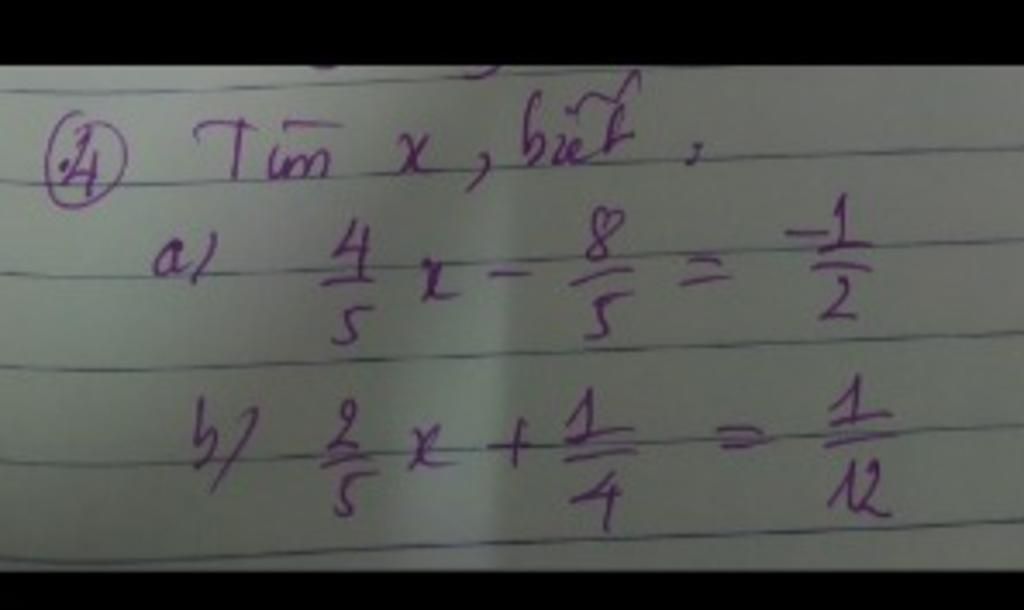 ④ Tìm x, biết,
a) 4/5 x - 8/5 = -1/2
b) 2/5 x + 1/4 = 1/12